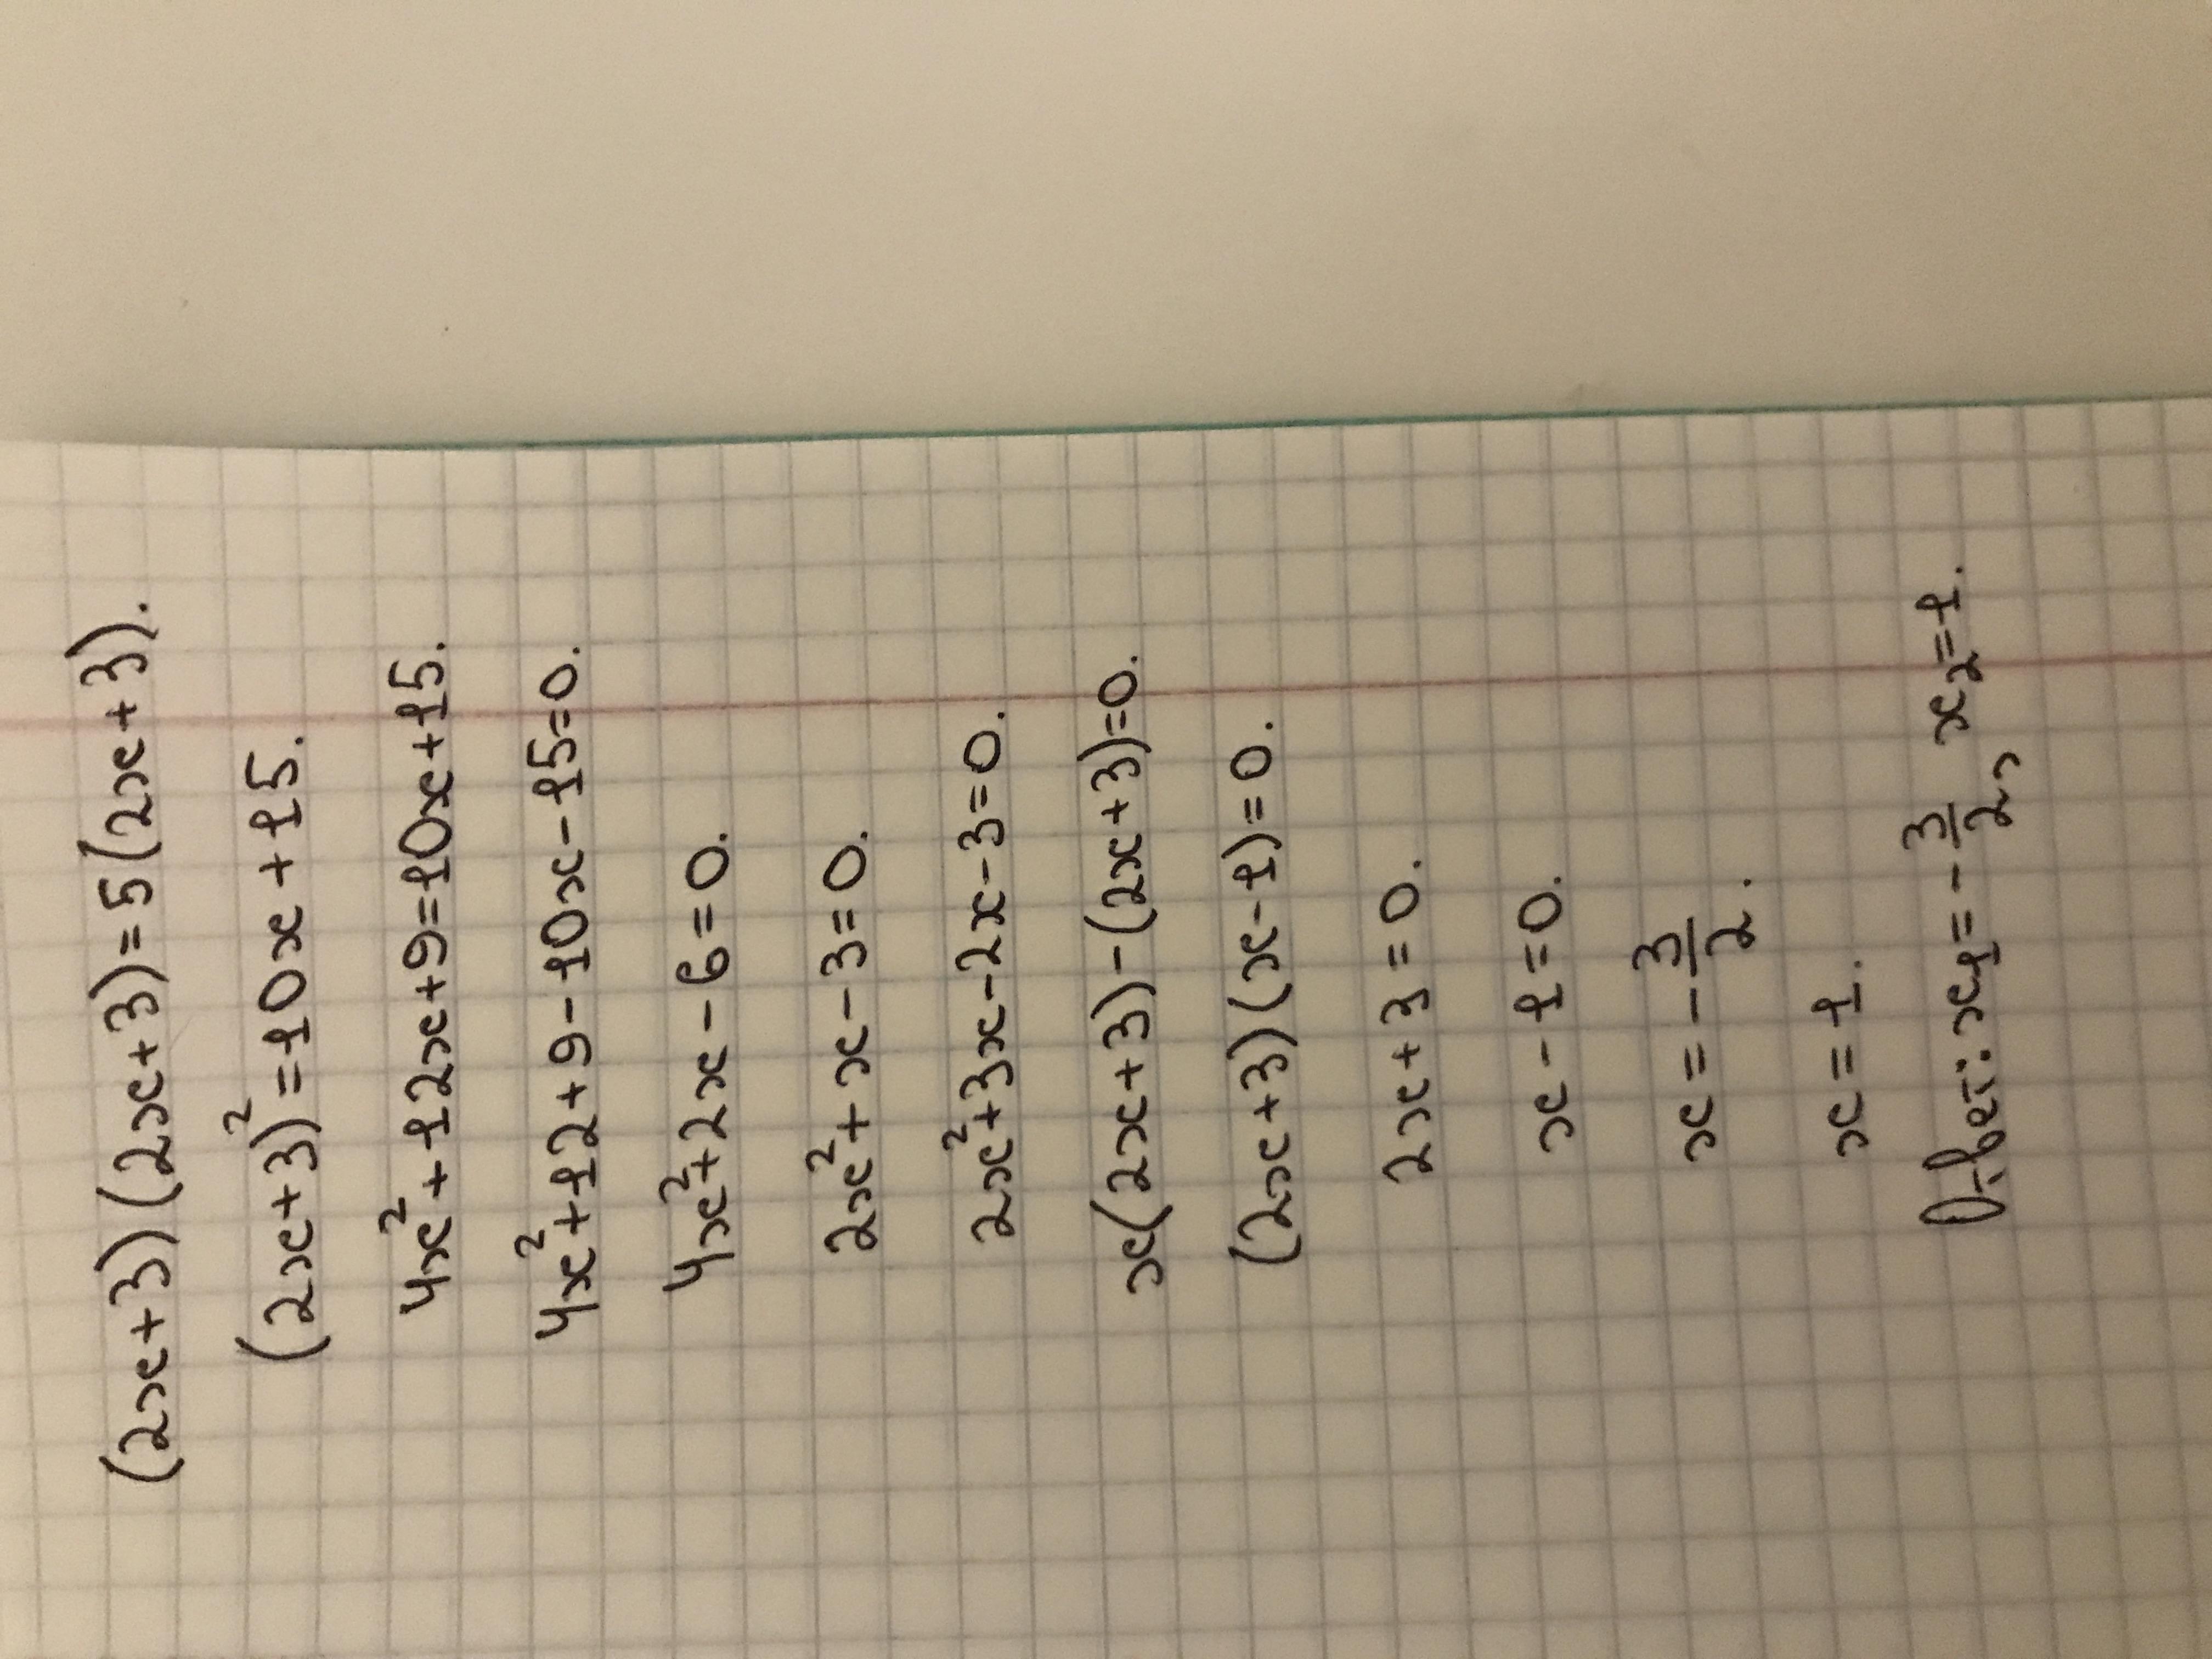 (2x+3)(2x+3)=5(2x+3).
(2x+3)²=10x+15.
4x²+12x+9=10x+15.
4x²+12+9-10x-15=0.
4x²+2x-6=0.
2x²+x-3=0.
2x²+3x-2x-3=0.
x(2x+3)-(2x+3)=0.
(2x+3)(x-1)=0.
2x+3=0.
x-1=0.
x=-3/2.
x=1.
Ответ: x₁=-3/2, x₂=1.